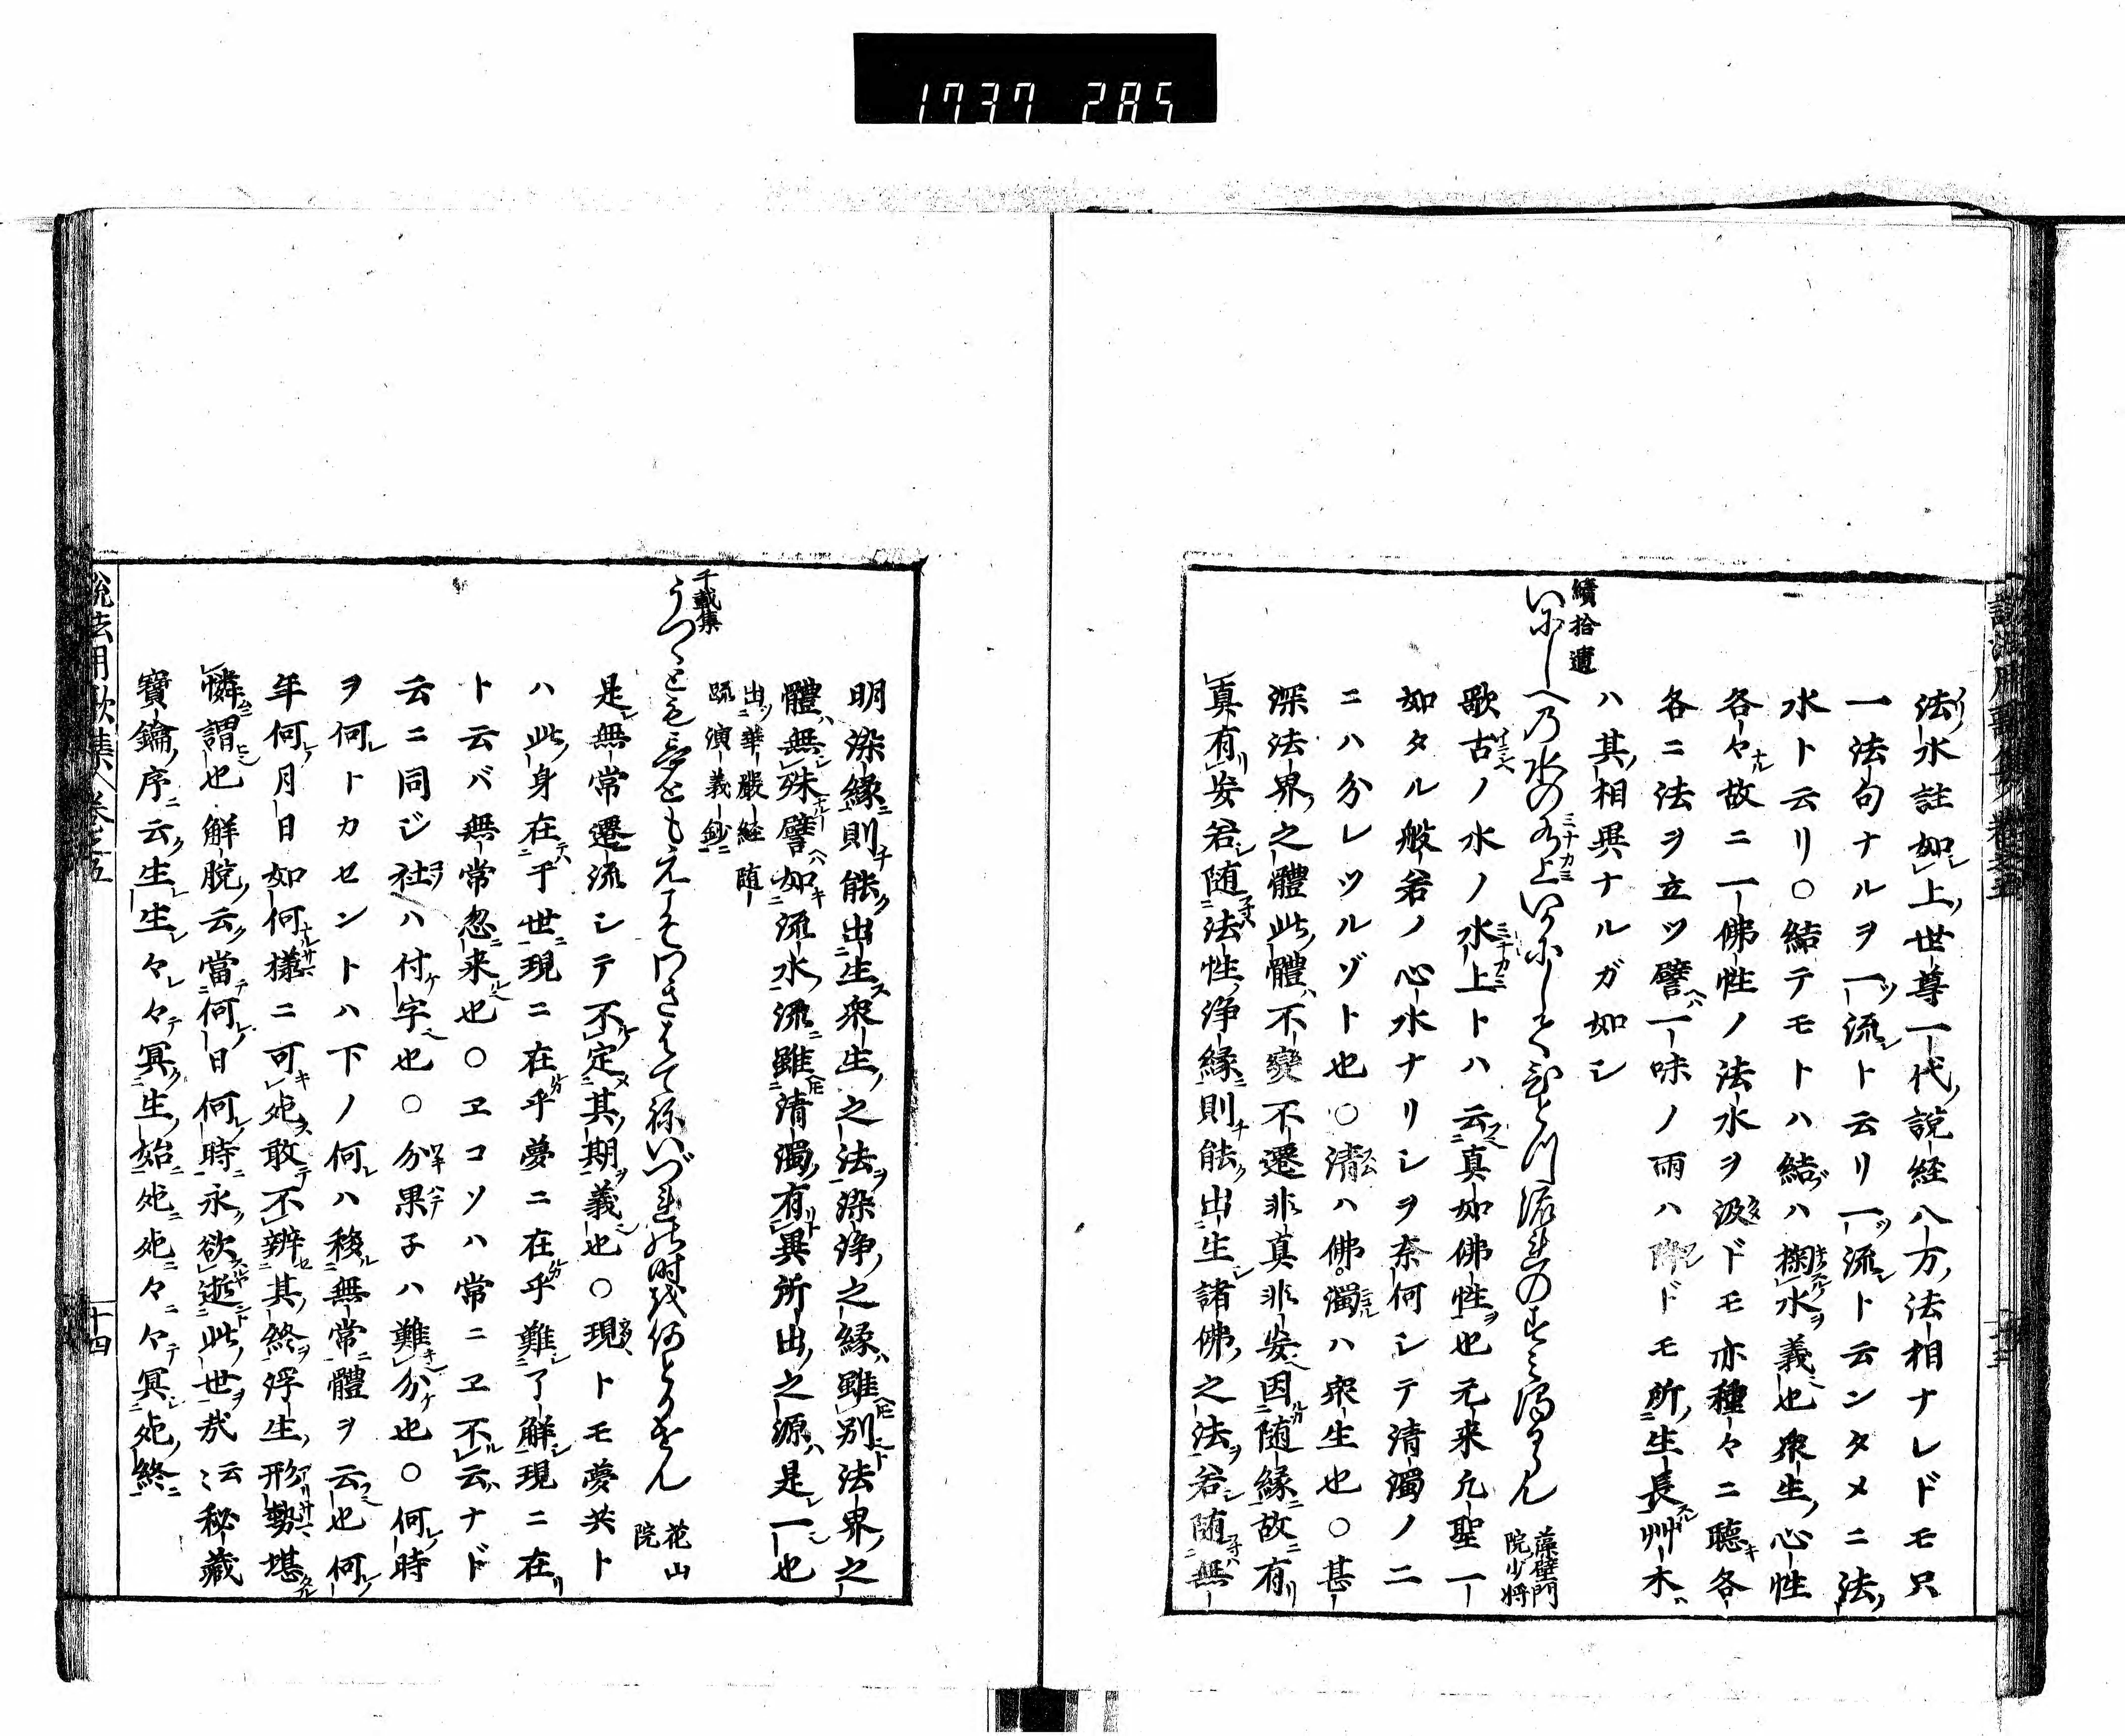 1737 285
法水註如上世尊一代説経八万法相ナレドモ只
一法句ナルヲ一流ト云リ一流ト云ンタメニ法
水ト云リ○結テモトハ結ハ掬水義也衆生心性
各々故ニ一佛性ノ法水ヲ汲ドモ亦種々ニ聴各
各ニ法ヲ立ツ譬一味ノ雨ハドモ所生長艸木
ハ其相異ナルガ如シ
續拾遺
いにしへの水の水上いかにしてひとつ流のすみ濁るらん 藻壁門院少将
歌古ノ水ノ水上トハ云真如佛性也元来凡聖一
如タル般若ノ心水ナリシヲ奈何シテ清濁ノ二
ニハ分レツルゾト也○清ハ佛濁ハ衆生也○甚
深法界之體此體不變不遷非真非妄因随縁故有
真有妄若随法性浄縁則能出生諸佛之法若随無
明染縁則能出生衆生之法染浄之縁雖別法界之
體無殊譬如流水流雖清濁有異所出之源是一也
出華嚴経随疏演義鈔
千載集
うつゝとも夢ともえこそわきはてねいづれの時をいづれとかせん 花山院
是無常遷流シテ不定其期義也○現トモ夢共ト
ハ此身在于世現ニ在乎夢ニ在乎難了解現ニ在
ト云バ無常忽来也○ヱコソハ常ニヱ不云ナド
云ニ同ジ社ハ付字也○分果子ハ難分也○何時
ヲ何トカセントハ下ノ何ハ移無常體ヲ云也何
年何月日如何様ニ可死敢不辨其終浮生形勢堪
憐謂也解脱云當何日何時永欲逝此世哉云云秘藏
寶鑰序云生生々々冥生始死死々々冥死終
説法用歌集 巻之五
十四